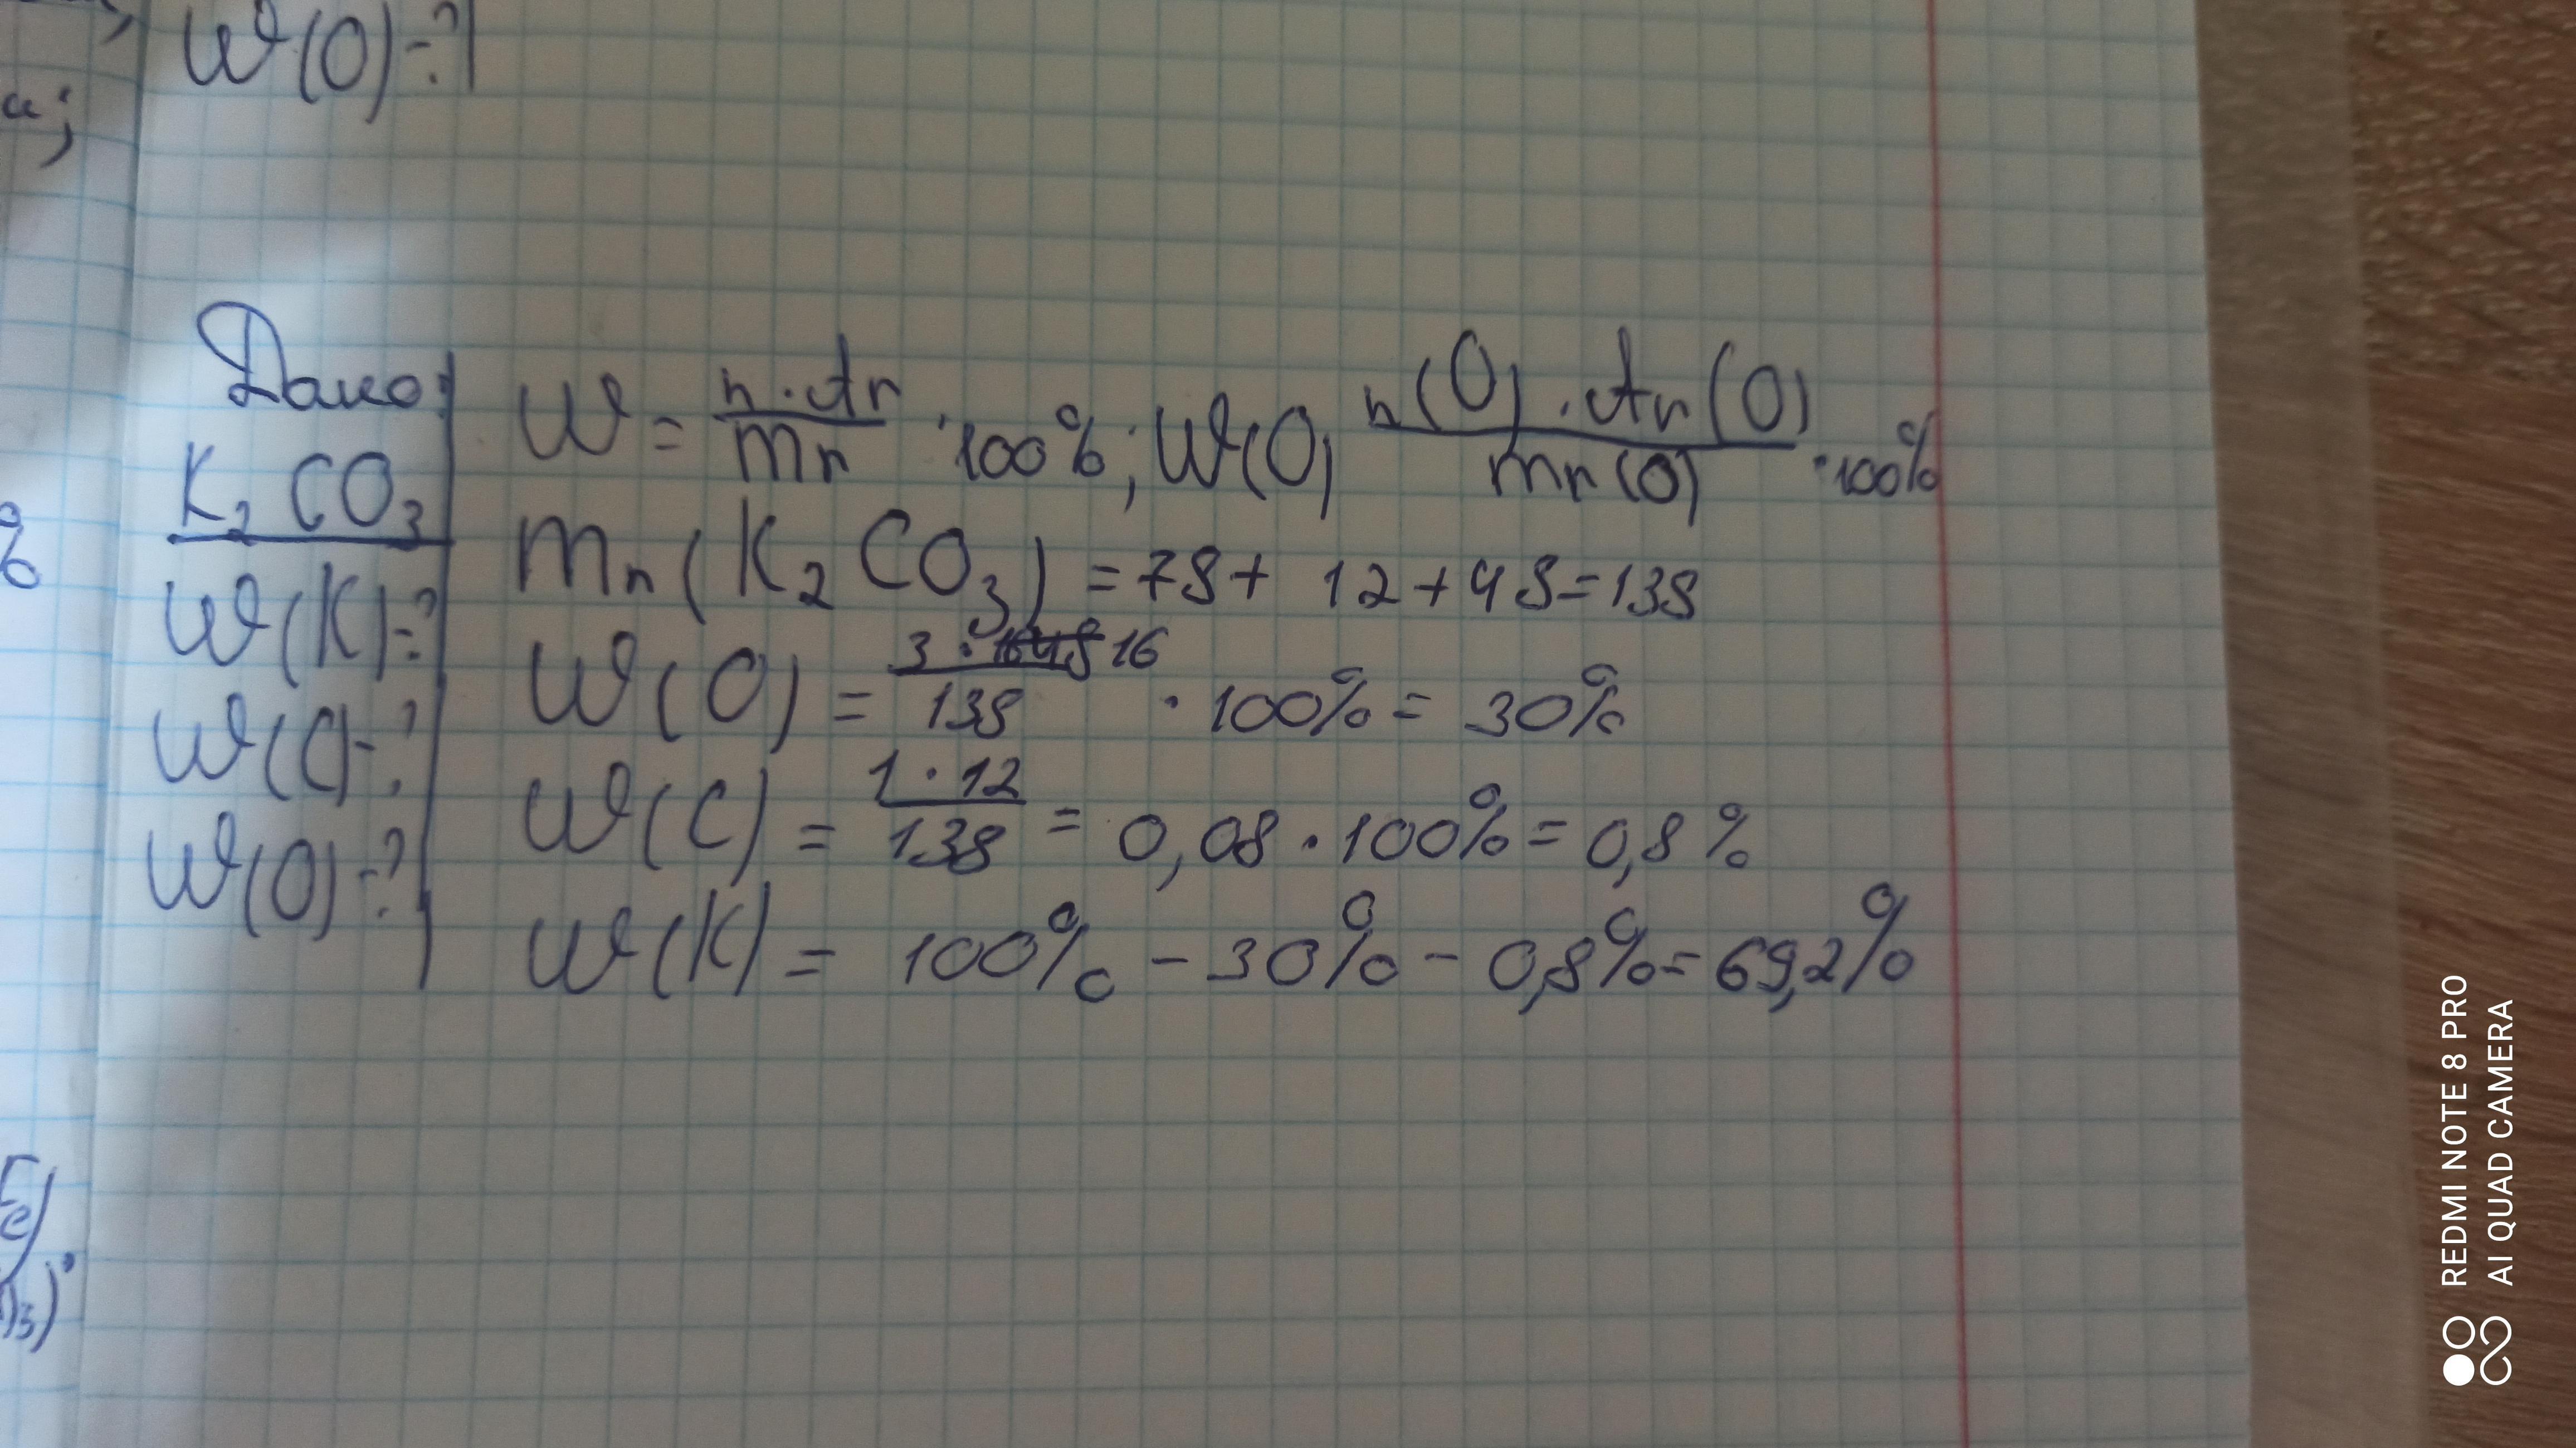 W(O)-?
а;
Дано:
K2CO3
W(K)-?
W(C)-?
W(O)-?
W = n·Ar / Mr ·100%; W(O) n(O)·Ar(O) / Mr(O) ·100%
Mr(K2CO3) = 78+ 12+48=138
W(O) = 3·16 / 138 · 100% = 30%
W(C) = 1·12 / 138 = 0,08·100% = 0,8%
W(K) = 100% - 30% - 0,8% = 69,2%
%
Fe)
3)·
REDMI NOTE 8 PRO
AI QUAD CAMERA